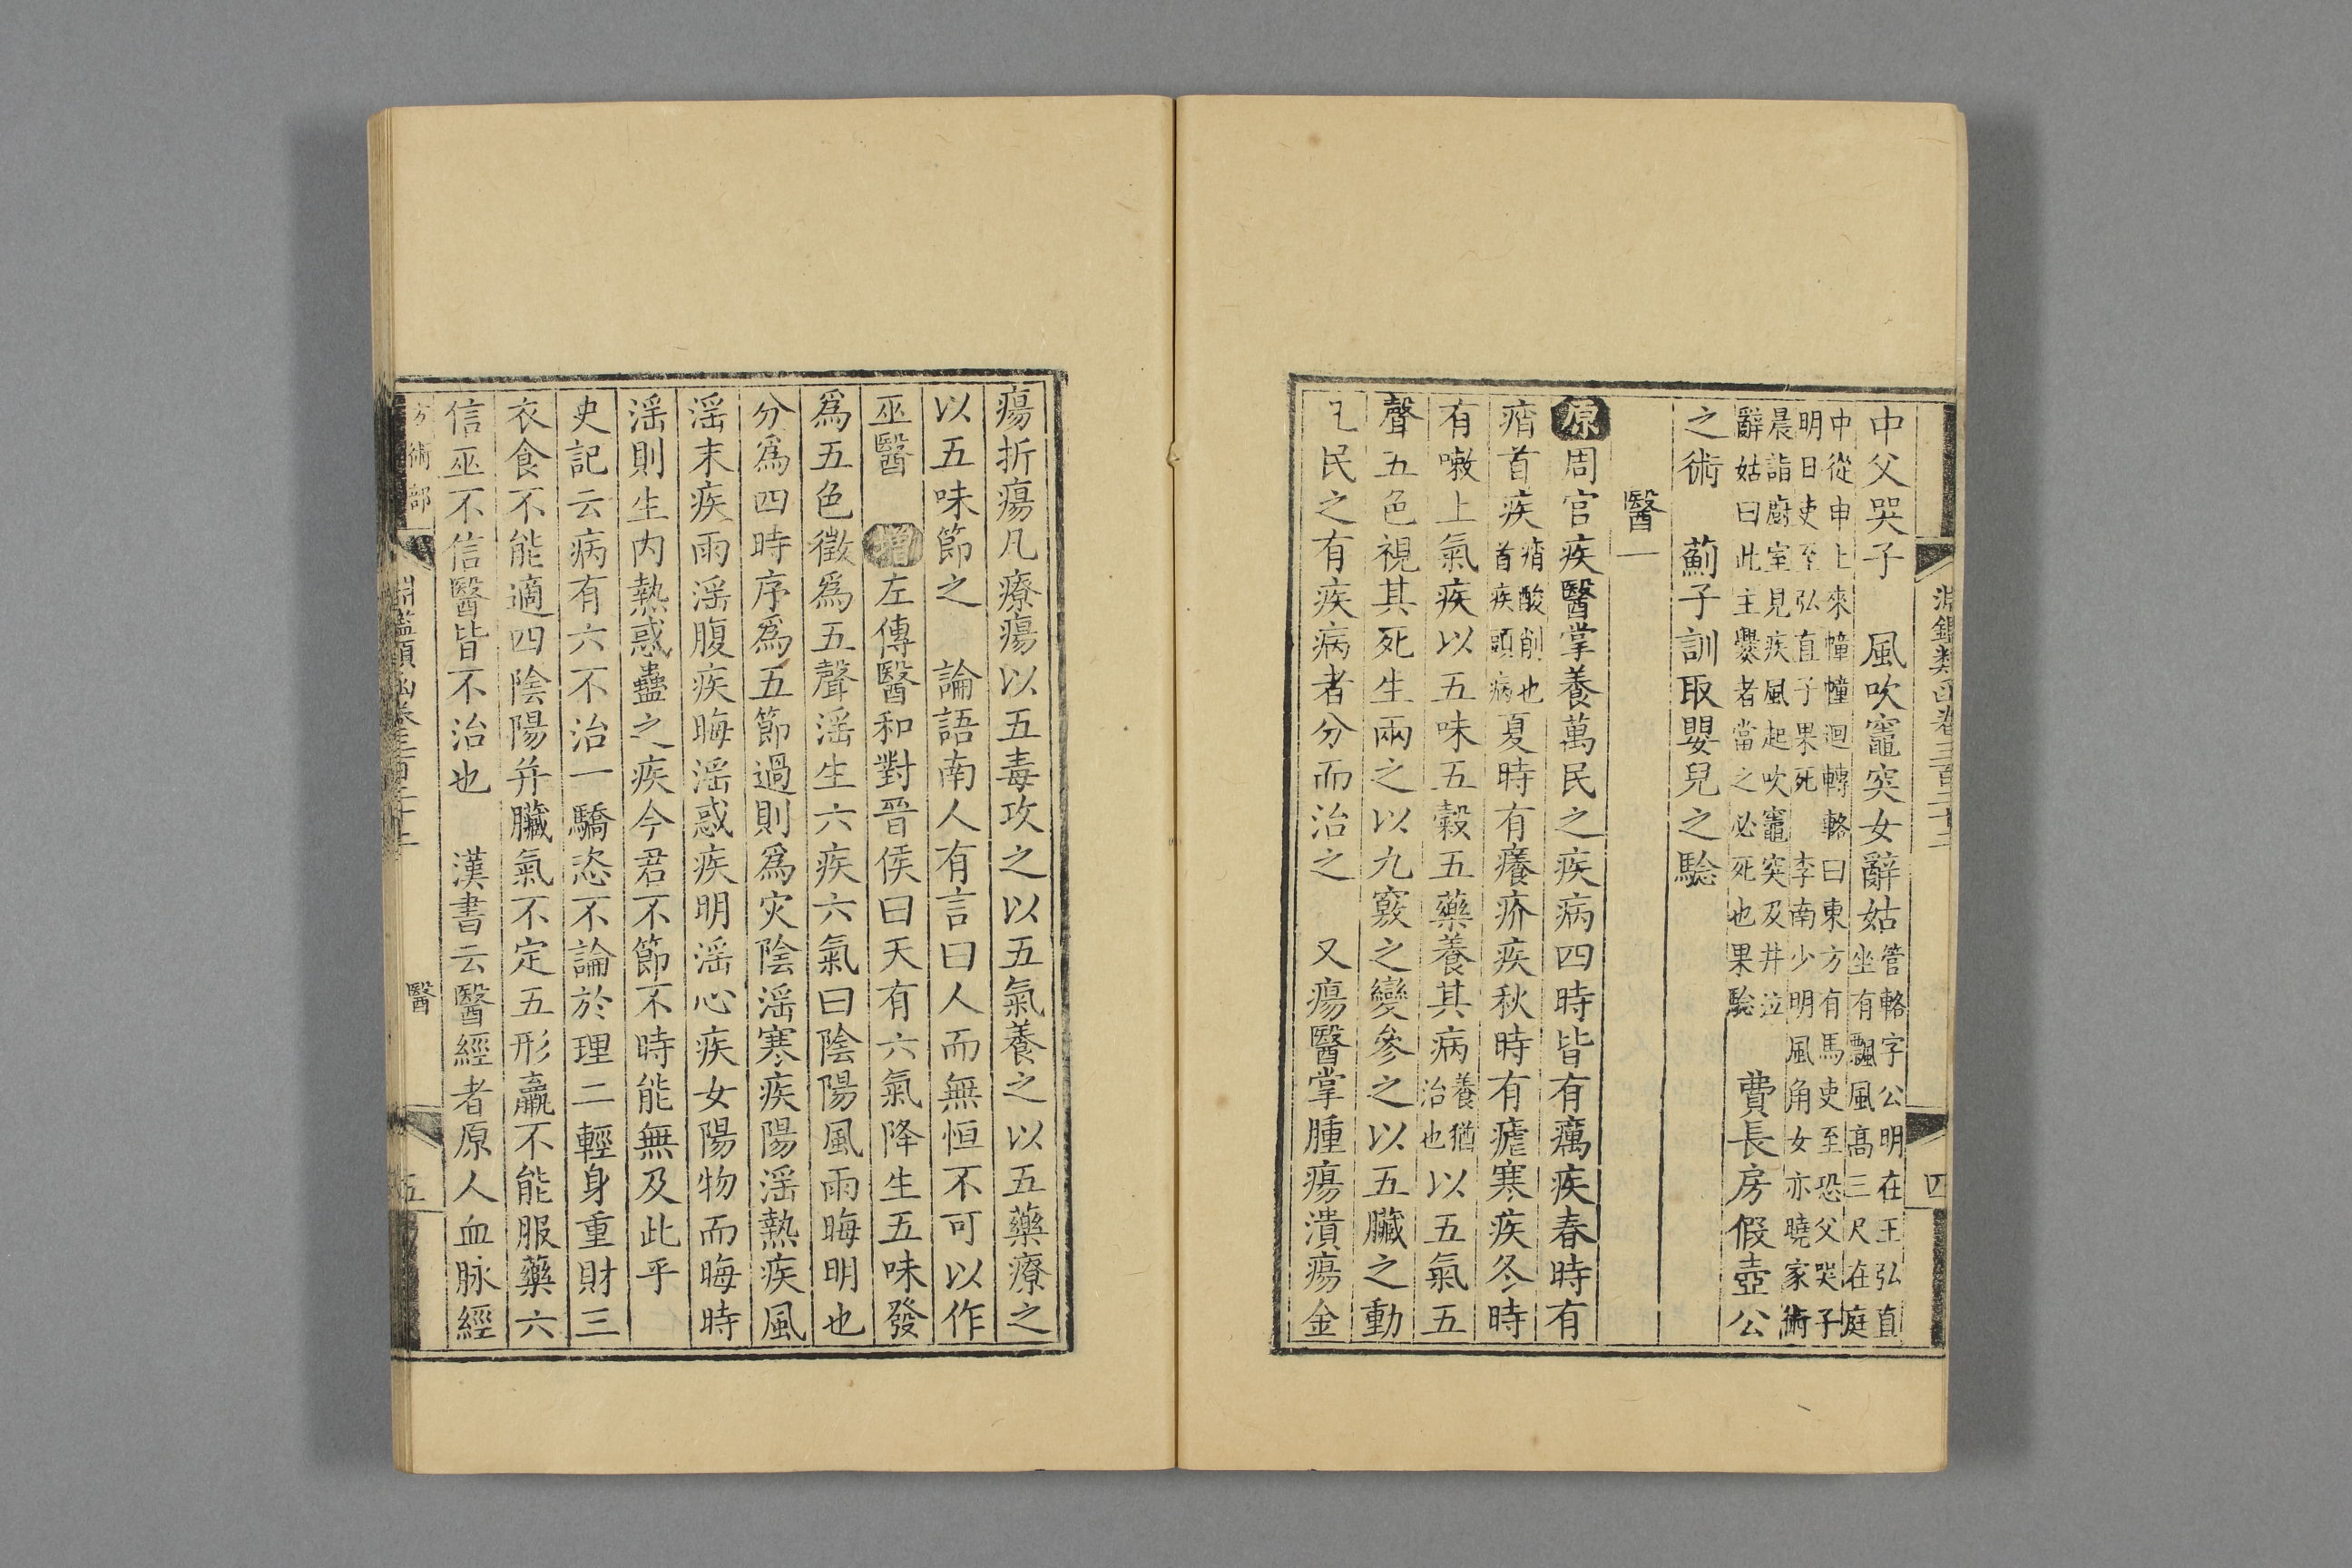 淵鑑類函卷三百二十二 四
中父哭子　風吹竈突女辭姑
管輅字公明在王弘直
坐有飄風髙三尺在庭
中從申上來幢幢迴轉輅曰東方有馬吏至恐父哭子
明日吏至弘直子果死　李南少明風角女亦曉家術
晨詣廚室見疾風起吹竈突及井泣
辭姑曰此主爨者當之必死也果騐
費長房假壺公
之術　薊子訓取嬰兒之騐
醫一
原周官疾醫掌養萬民之疾病四時皆有癘疾春時有
痟首疾
痟酸削也
首疾頭病
夏時有癢疥疾秋時有瘧寒疾冬時
有嗽上氣疾以五味五穀五藥養其病
養猶
治也
以五氣五
聲五色視其死生兩之以九竅之變參之以五臟之動
民之有疾病者分而治之　又瘍醫掌腫瘍潰瘍金
瘍折瘍凡療瘍以五毒攻之以五氣養之以五藥療之
以五味節之　論語南人有言曰人而無恒不可以作
巫醫　增左傳醫和對晉侯曰天有六氣降生五味發
爲五色徵爲五聲淫生六疾六氣曰陰陽風雨晦明也
分爲四時序爲五節過則爲灾陰淫寒疾陽淫熱疾風
淫末疾雨淫腹疾晦淫惑疾明淫心疾女陽物而晦時
淫則生内熱惑蠱之疾今君不節不時能無及此乎
史記云病有六不治一驕恣不論於理二輕身重財三
衣食不能適四陰陽并臟氣不定五形羸不能服藥六
信巫不信醫皆不治也　漢書云醫經者原人血脉經
方術部 淵鑑類函卷三百二十二 醫 五